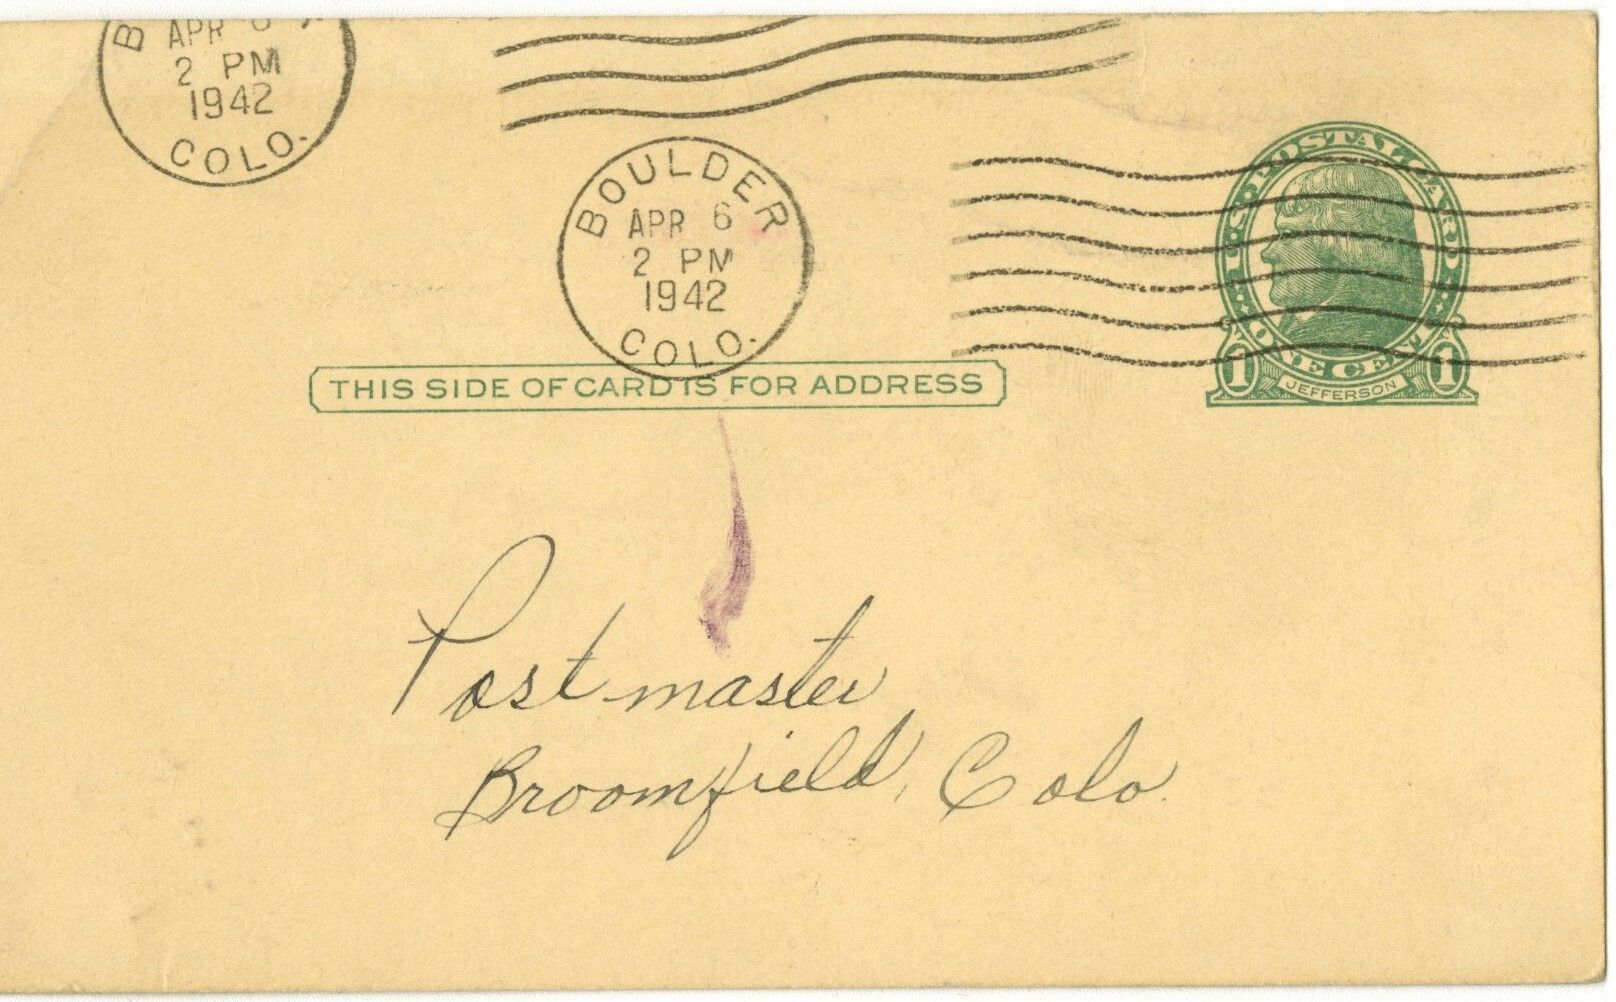 B
APR 6
2 PM
1942
COLO.
BOULDER
APR 6
2 PM
1942
COLO.
U.S. POSTAL CARD
1 ONE CENT 1
JEFFERSON
THIS SIDE OF CARD IS FOR ADDRESS
Postmaster
Broomfield, Colo.